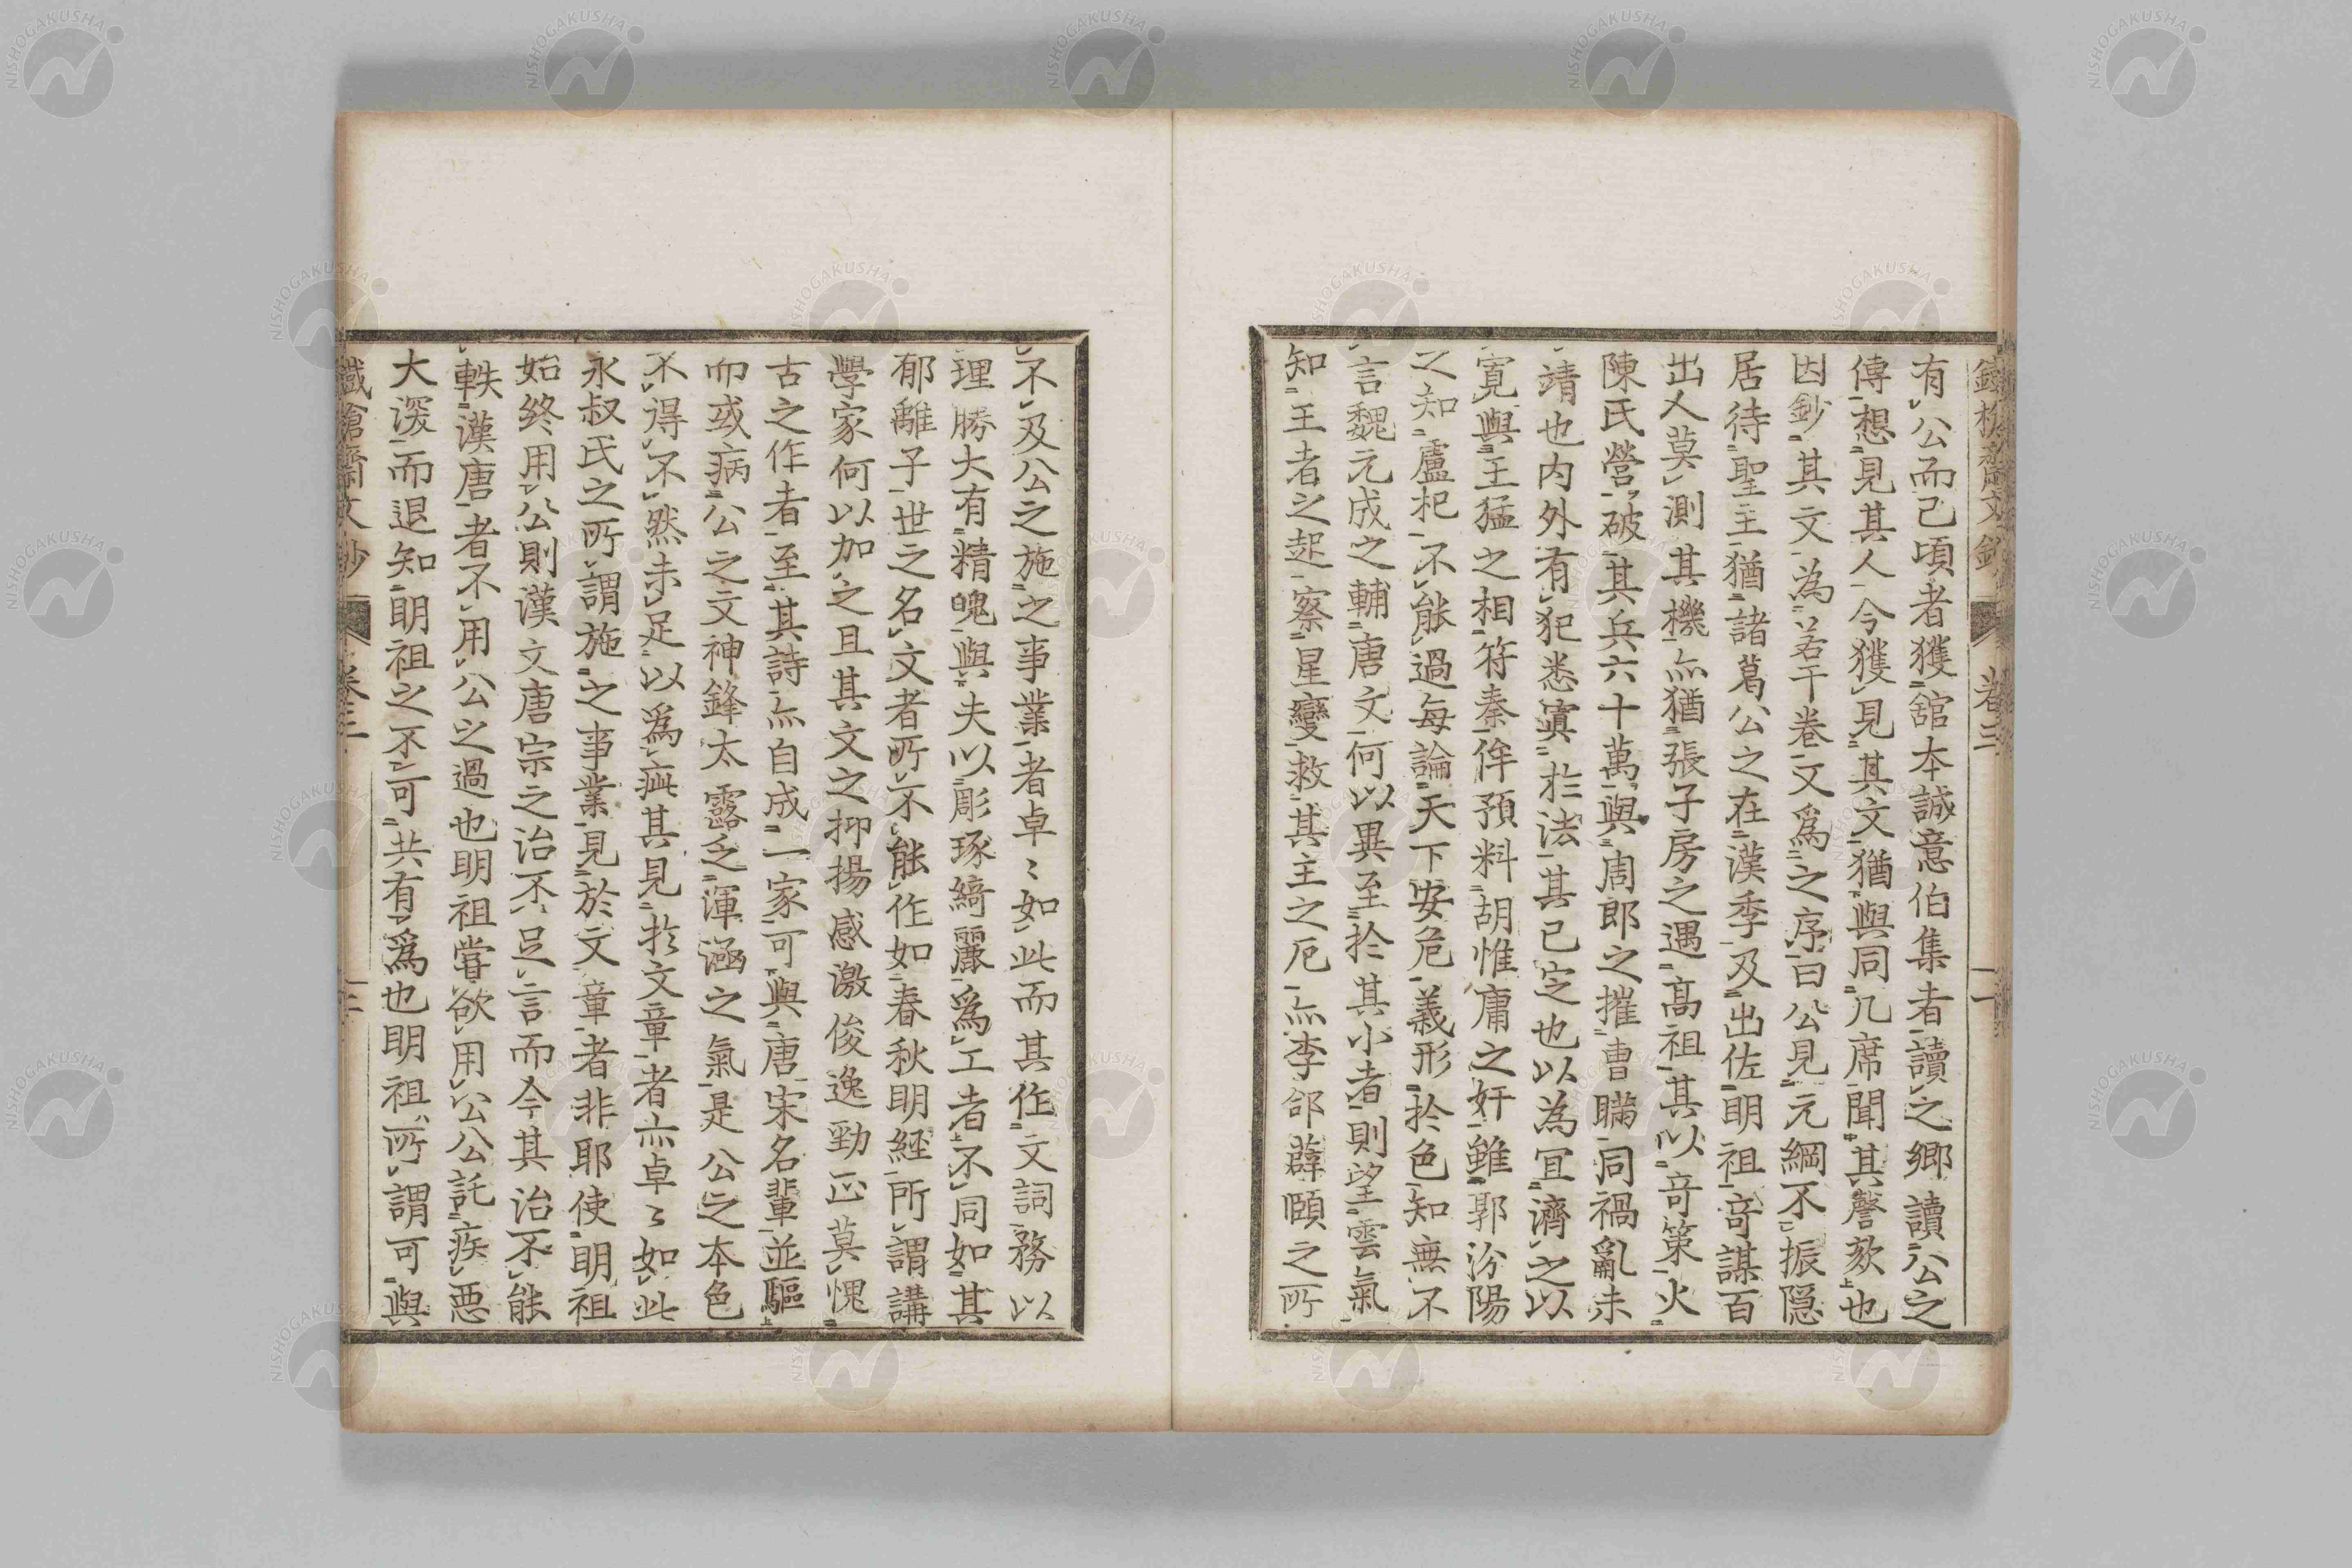 有公而己頃者獲舘本誠意伯集者讀之郷讀公之
傳想見其人今獲見其文猶與同几席聞其謦欬也
因鈔其文為若干卷又爲之序曰公見元綱不振隠
居待聖主猶諸葛公之在漢季及出佐明祖竒謀百
出人莫測其機亦猶張子房之遇高祖其以竒策火
陳氏營破其兵六十萬與周郎之摧曹瞞同禍亂未
靖也内外有犯悉寘於法其已定也以為冝濟之以
寛與王猛之相符秦侔預料胡惟庸之奸雖郭汾陽
之知盧杞不能過毎論天下安危義形於色知無不
言魏元成之輔唐文何以異至於其小者則望雲氣
知王者之起察星變救其主之厄亦李郃薛頤之所
不及公之施之事業者卓〻如此而其作文詞務以
理勝大有精魄與夫以彫琢綺麗爲工者不同如其
郁離子世之名文者所不能作如春秋明経所謂講
學家何以加之且其文之抑揚感激俊逸勁正莫愧
古之作者至其詩亦自成一家可與唐宋名輩並驅
而或病公之文神鋒太露乏渾涵之氣是公之本色
不得不然未足以爲疵其見於文章者亦卓〻如此
永叔氏之所謂施之事業見於文章者非耶使明祖
始終用公則漢文唐宗之治不足言而今其治不能
軼漢唐者不用公之過也明祖嘗欲用公公託疾惡
大深而退知明祖之不可共有爲也明祖所謂可與
NISHOGAKUSHA